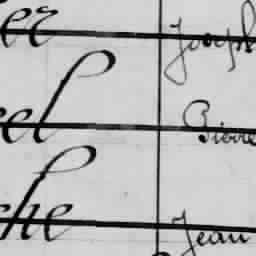 er Joseph
el Pierre
che Jean